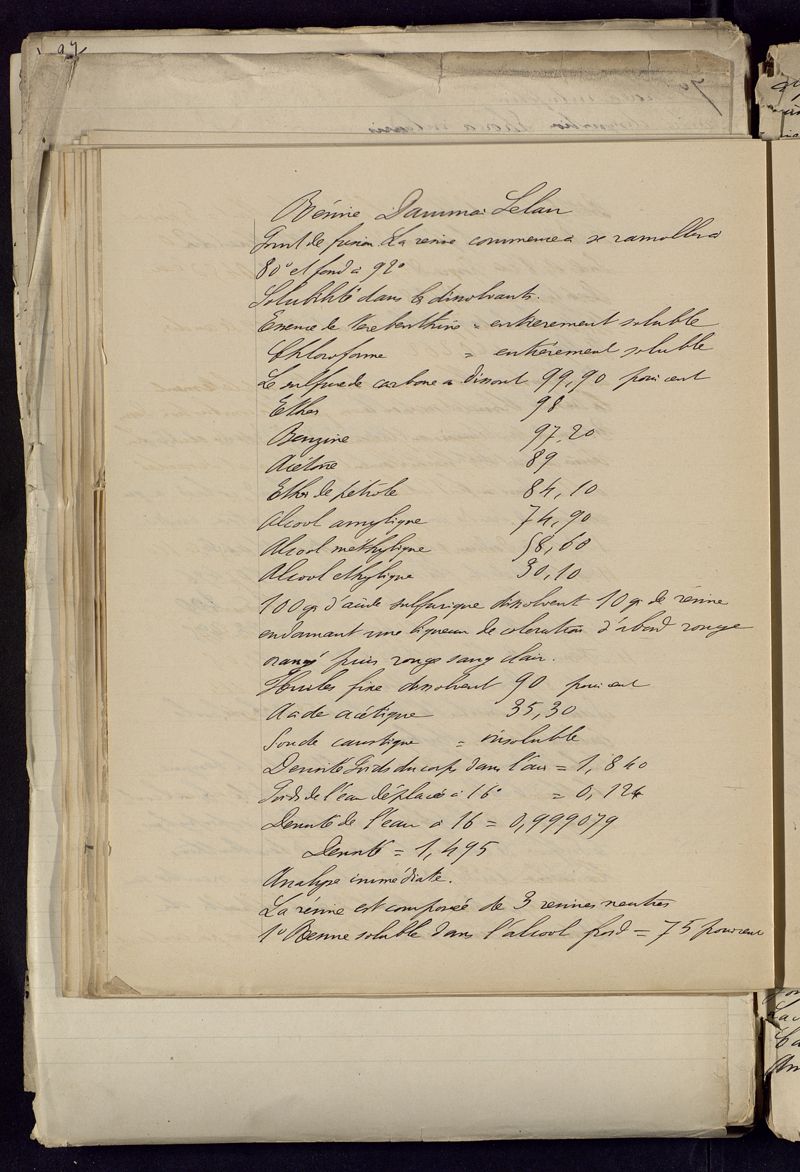 97
Résine Dammar Selan
Point de fusion. La résine commence à se ramollir à
80° et fond à 92°
Solubilité dans les dissolvants.
Essence de Térébenthine = entièrement soluble
Chloroforme = entièrement soluble
Le sulfure de carbone a dissout 99,90 pour cent
Ether 98
Benzine 97,20
Acétone 89
Ether de pétrole 84,10
Alcool amylique 74,90
Alcool méthylique 58,60
Alcool ethylique 30,10
100 gr d'acide sulfurique dissolvent 10 gr de résine
en donnant une liqueur de coloration d'abord rouge
orangé puis rouge sang clair.
Huiles fixe dissolvent 90 pour cent
Acide acétique 35,30
Soude caustique = insoluble
Densité Poids du corps dans l'air = 1,840
Poids de l'eau déplacée à 16° = 0,124
Densité de l'eau à 16 = 0,999079
Densité = 1,495
Analyse immédiate.
La résine est composée de 3 résines neutres
1° Résine soluble dans l'alcool froid = 75 pour cent